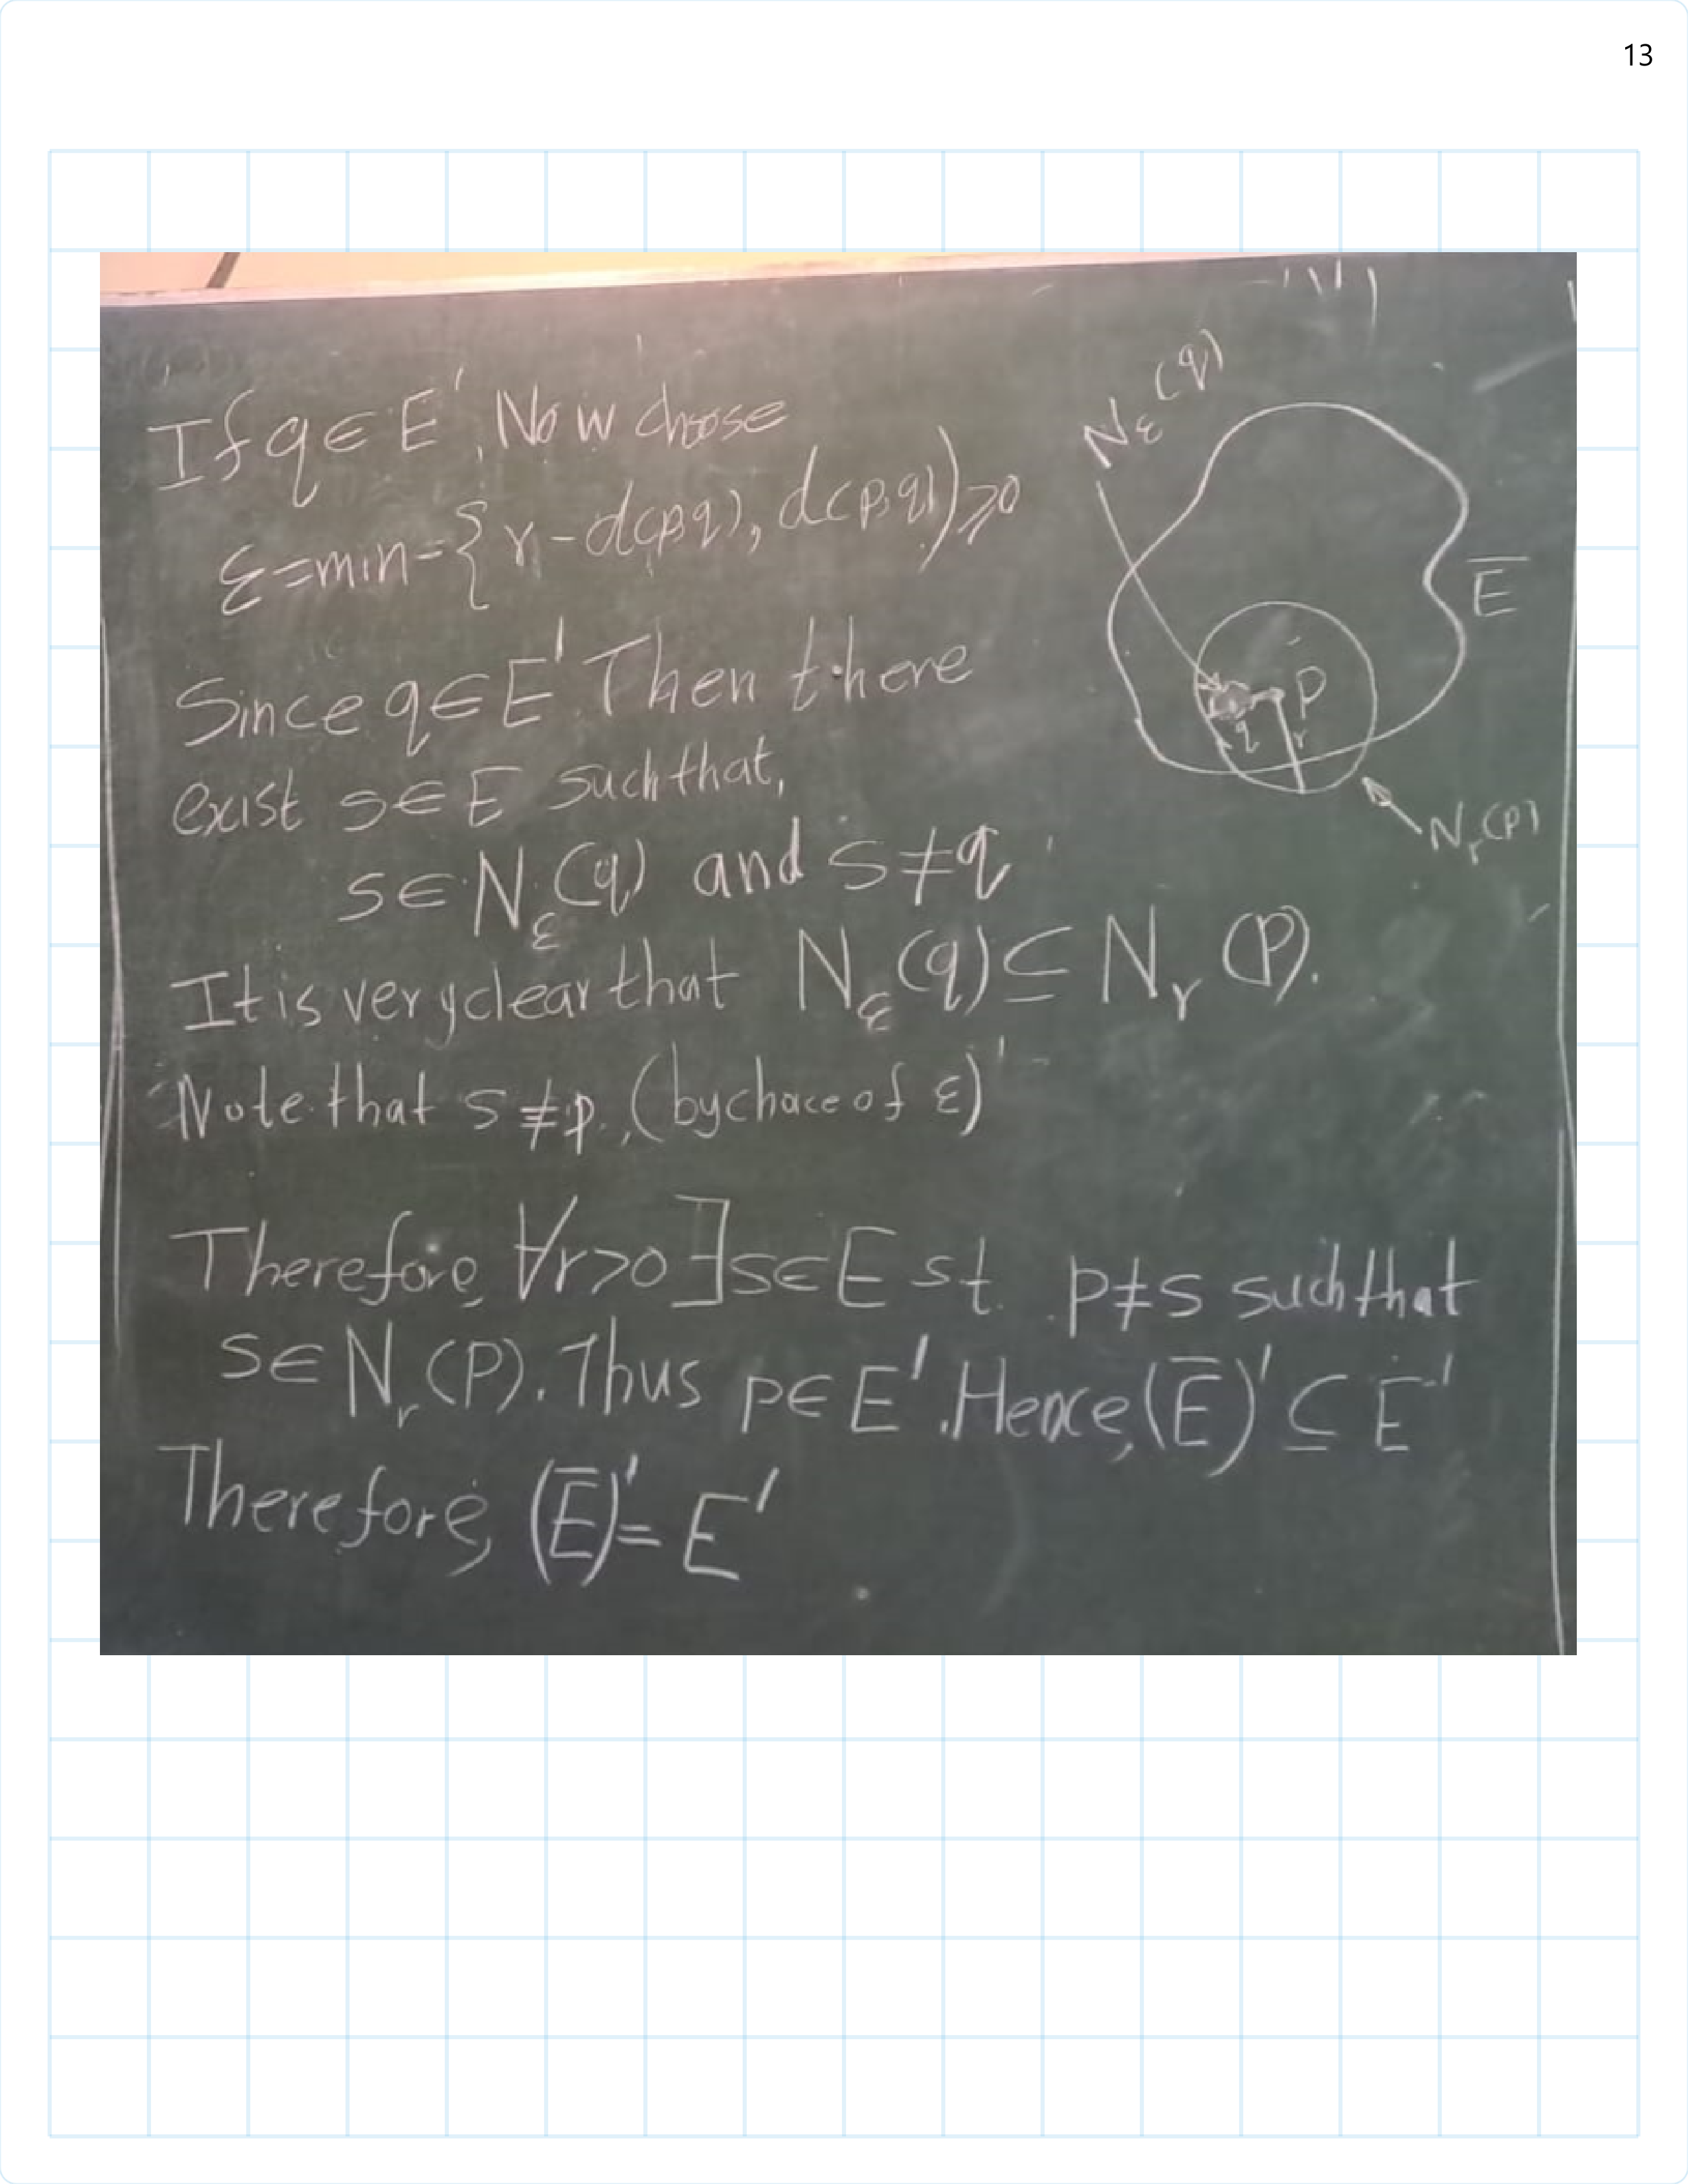 13
If q ∈ E', Now choose
ε = min = { r - d(p,q), d(p,q) ) ⩾ 0
Since q ∈ E' Then there
exist s ∈ E such that,
s ∈ N_ε (q) and s ≠ q
It is very clear that N_ε (q) ⊆ N_r (P).
Note that s ≠ p, (by choce of ε)
Therefore, ∀r>0 ∃s∈E st. p≠s such that
s ∈ N_r (P). Thus p ∈ E'. Hence, (E̅)' ⊆ E'
Therefore, (E̅)' = E'
N_ε (q)
E̅
P
q
r
N_r (P)